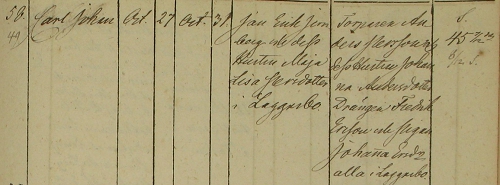 58. Carl Johan Oct. 27 Oct. 31.
Jan Erik Jern
berg och dess
Hustru Maja
Lisa Persdotter
i Laggarbo.
Torparen An
ders Persson o
dess Hustru Johan
na Andersdotter
Drängen Fredrik
Ersson och Pigan
Johanna Ersdr
alla i Laggarbo